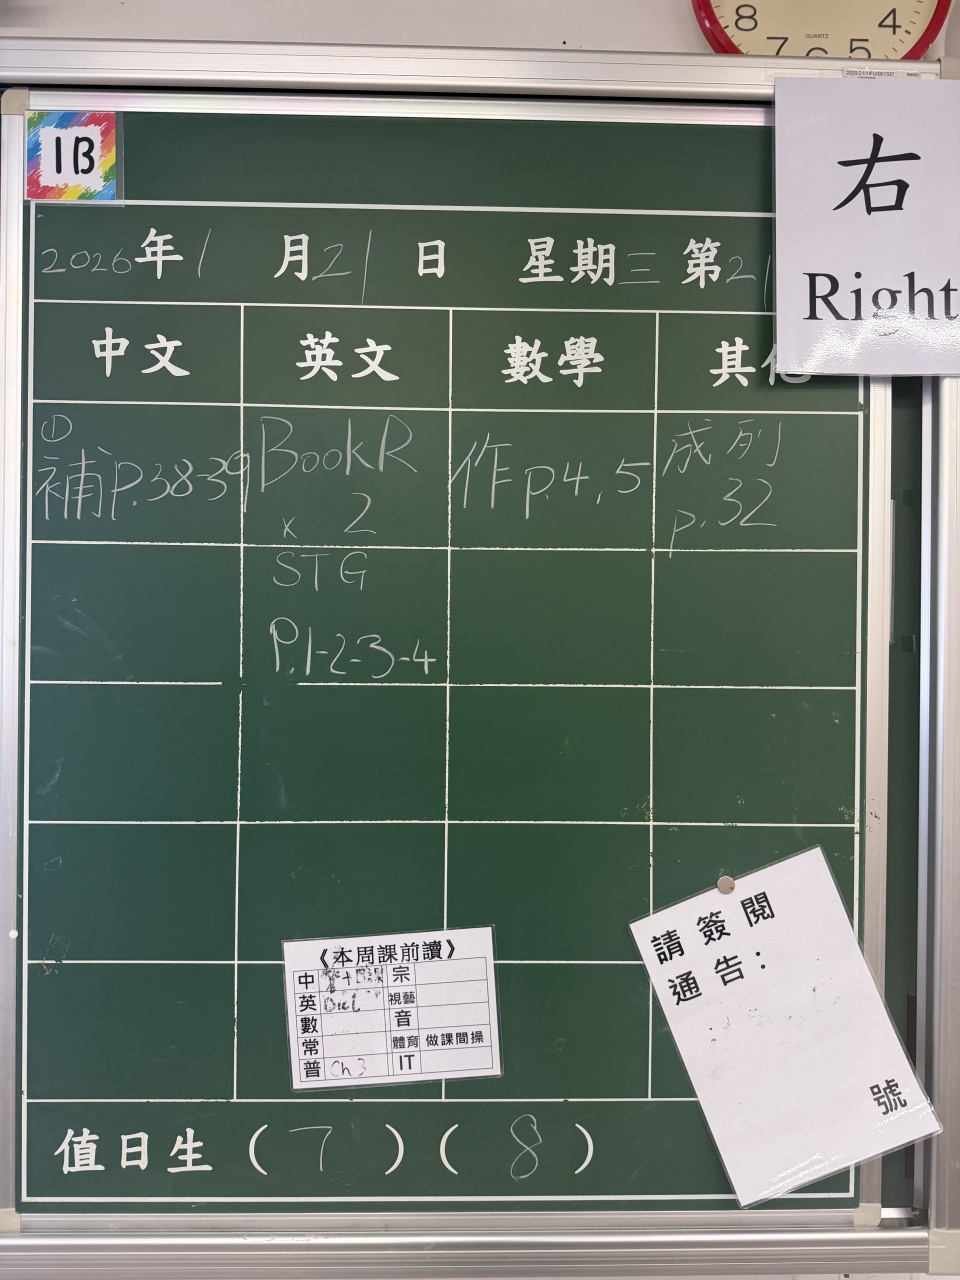 8 4
QUARTZ
7 6 5
1B
右
Right
2026年1月21日 星期三 第21
中文 英文 數學 其他
①
補P.38-39
BookR
x 2
STG
P.1-2-3-4
作P.4,5
成列
p.32
《本周課前讀》
中 宗
英 視藝
數 音
常 體育 做課間操
普 Ch 3 IT
請簽閱
通告：
號
值日生（7）（8）